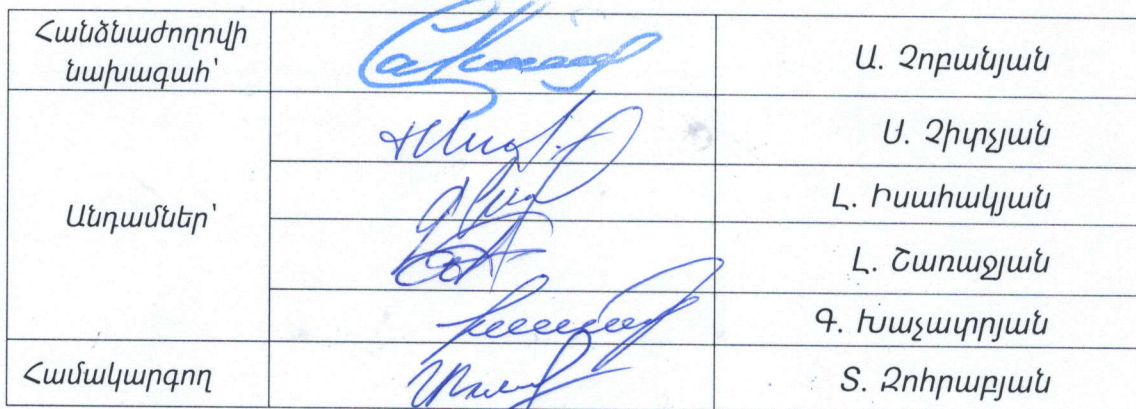 Հանձնաժողովի
նախագահ՝
Ա. Չոբանյան
Ս. Չիտչյան
Անդամներ՝
Լ. Իսահակյան
Լ. Շառաջյան
Գ. Խաչատրյան
Համակարգող
Տ. Զոհրաբյան